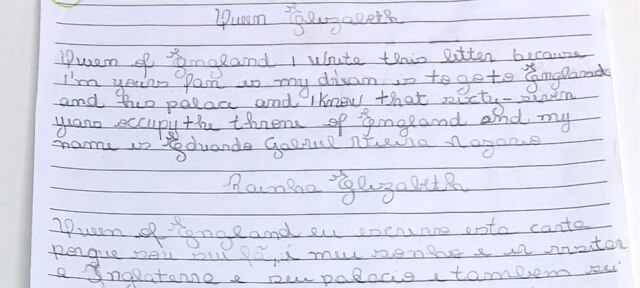 Queen Elizabeth
Queen of England I write this letter because
I'm yours fan is my dream is to go to England
and his palace and I know that sixty-seven
years occupy the throne of England and my
name is Eduardo Gabriel Vieira Nazario
Rainha Elizabeth
Queen of England eu escrevo esta carta
porque sou sua fã, i meu sonho e ir visitar
a Inglaterra e seu palacio e tambem sei